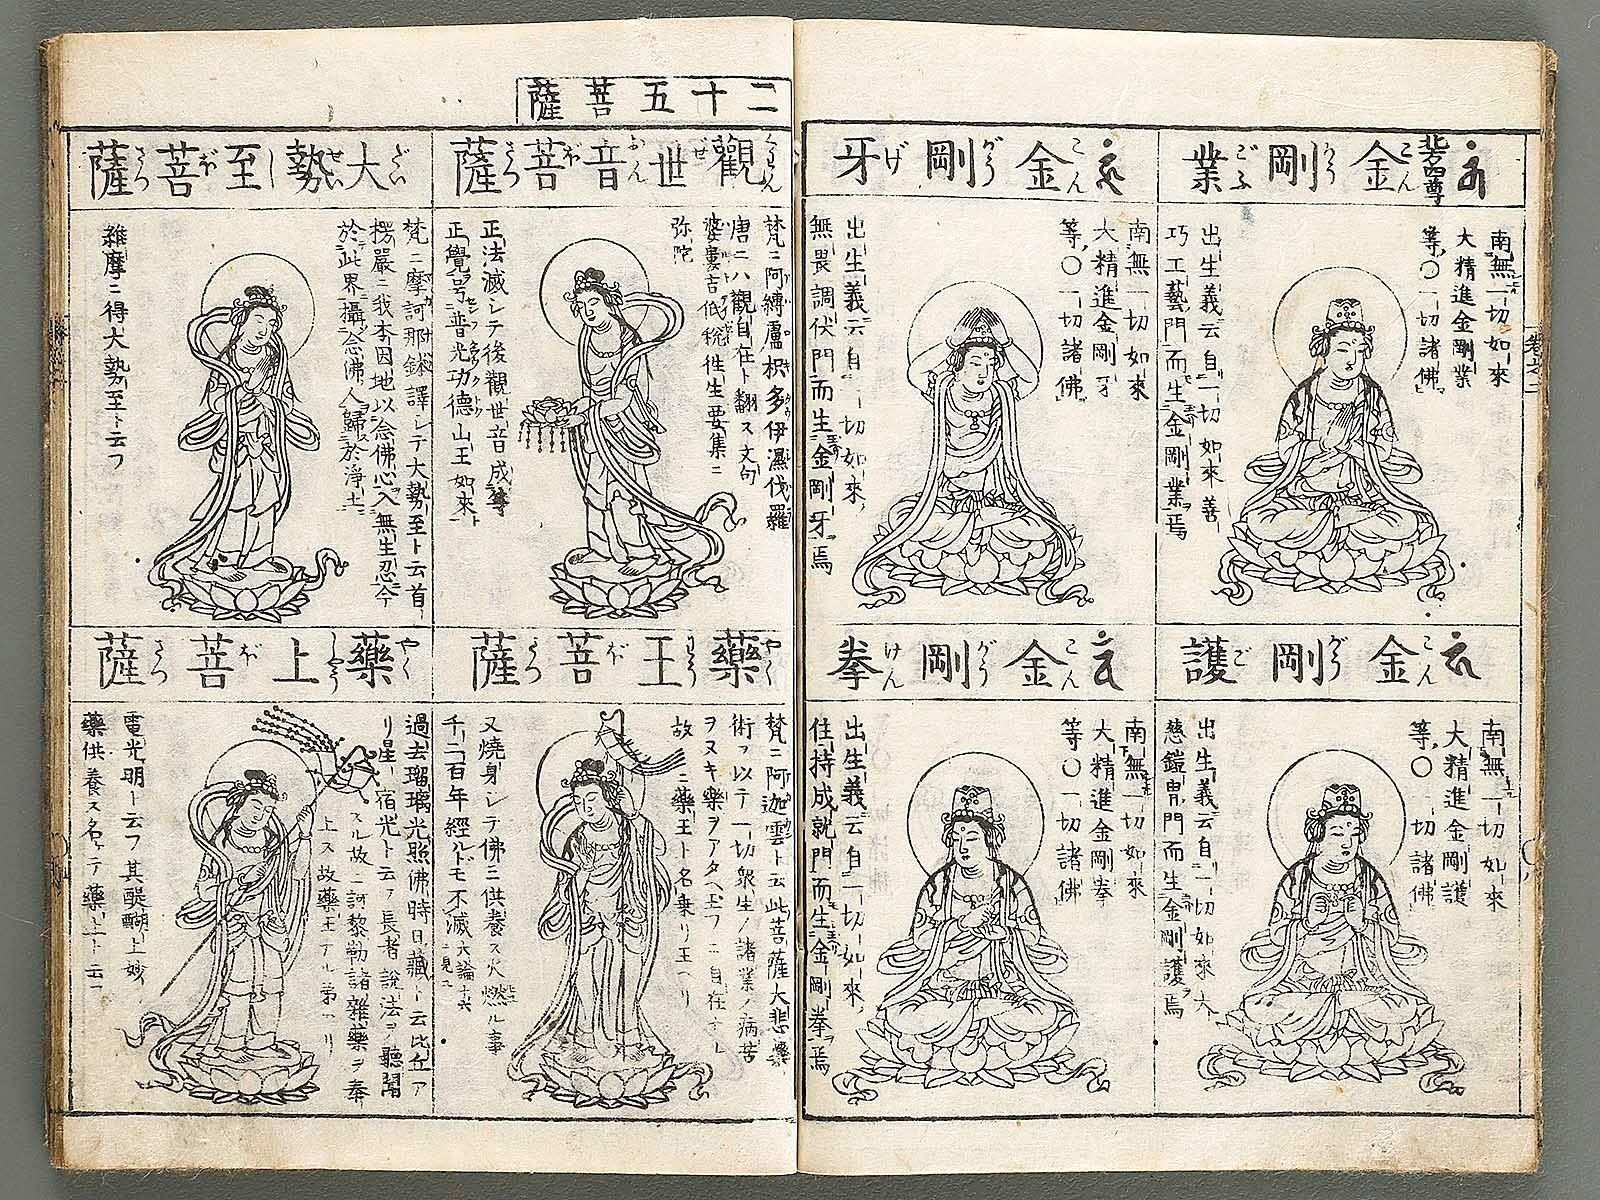 北方四尊
金剛業
こんがうごふ
南無一切如來
大精進金剛業
等○一切諸佛
出生義云自一切如來善
巧工藝門而生金剛業焉
金剛護
こんがうご
南無一切如來
大精進金剛護
等○一切諸佛
出生義云自一切如來大
慈鎧冑門而生金剛護焉
金剛牙
こんがうげ
南無一切如來
大精進金剛牙
等○一切諸佛
出生義云自一切如來
無畏調伏門而生金剛牙焉
金剛拳
こんがうけん
南無一切如來
大精進金剛拳
等○一切諸佛
出生義云自一切如來
住持成就門而生金剛拳焉
卷之二
二十五菩薩
觀世音菩薩
くわんぜおんぼさつ
梵ニ阿縛盧枳多伊濕伐羅
唐ニハ觀自在ト翻ス文句
婆婁吉低稅往生要集ニ
弥陀
正法滅シテ後觀世音成等
正覺号普光功德山王如來ト
大勢至菩薩
だいせいしぼさつ
梵ニ摩訶那鉢譯シテ大勢至ト云首
楞嚴ニ我本因地以念佛心入無生忍今
於此界攝念佛人歸於淨土
維摩ニ得大勢至ト云フ
藥王菩薩
やくわうぼさつ
梵ニ阿迦雲ト云此菩薩大悲藥
術ヲ以テ一切衆生ノ諸業ノ病苦
ヲヌキ樂ヲアタヘ玉フニ自在ナル
故ニ藥王ト名乗リ玉ヘリ
又燒身シテ佛ニ供養ス火燃ル事
千二百年經ルドモ不滅 大論十六ニ見エ
藥上菩薩
やくじやうぼさつ
過去瑠璃光照佛時日藏ト云比丘ア
リ星宿光ト云フ長者說法ヲ聽聞
スル故ニ訶黎勒諸雜藥ヲ奉
上ス故藥王ナル弟ヘリ
電光明ト云フ其醍醐上妙
藥供養ス名ケテ藥上ト云フ